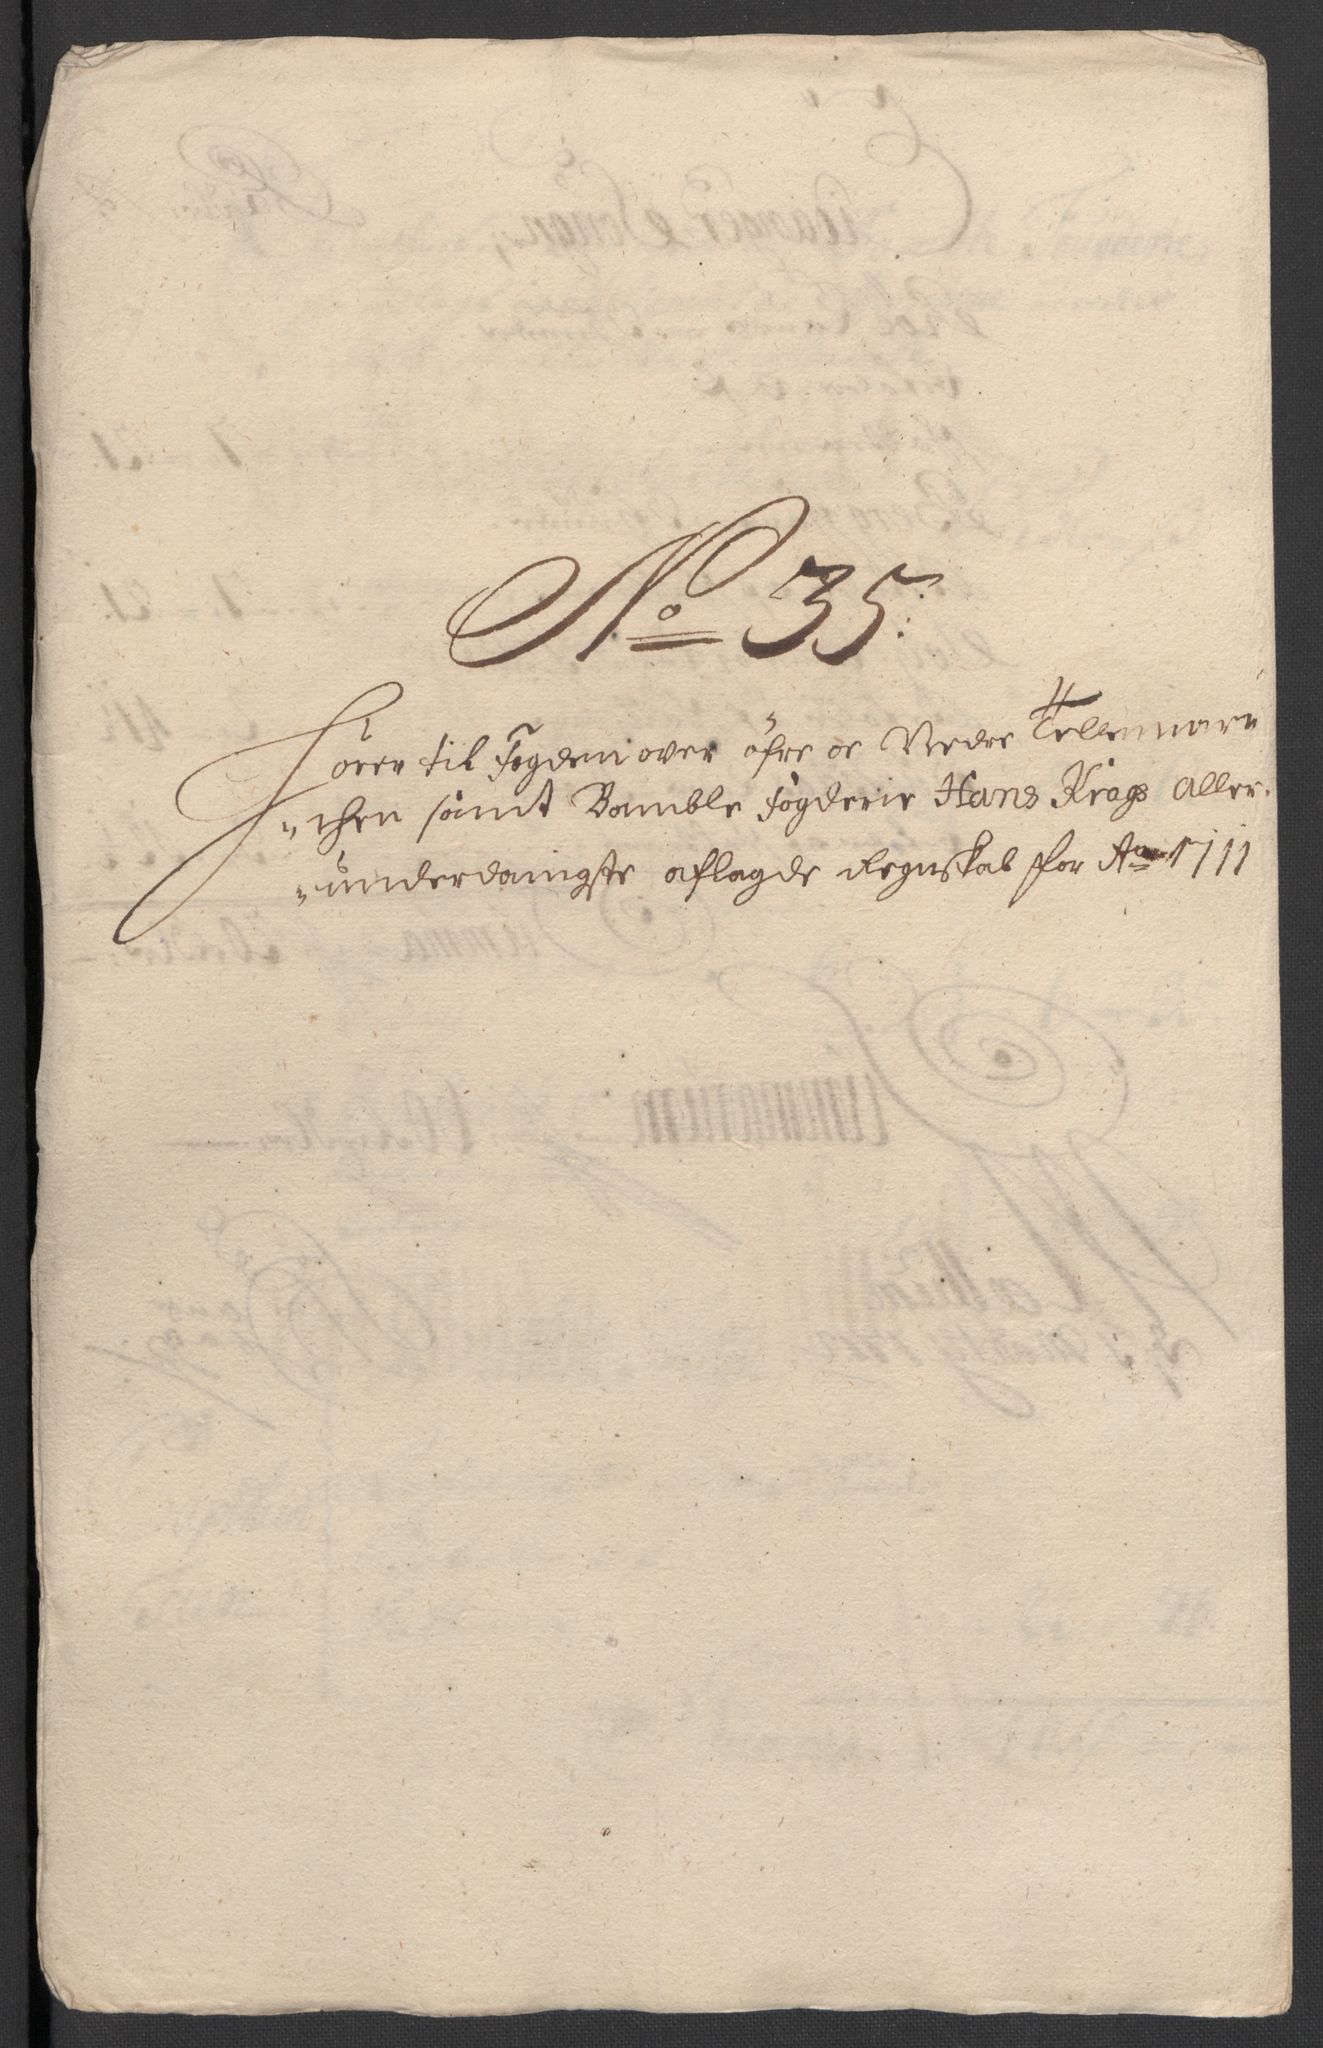 No 35.
Hörer til Fogden over öfre oc Nedre Tellemar„
„chen samt Bamble fogderie Hans Krags aller„
„underdanigste aflagde Regnskab for Ao 1711